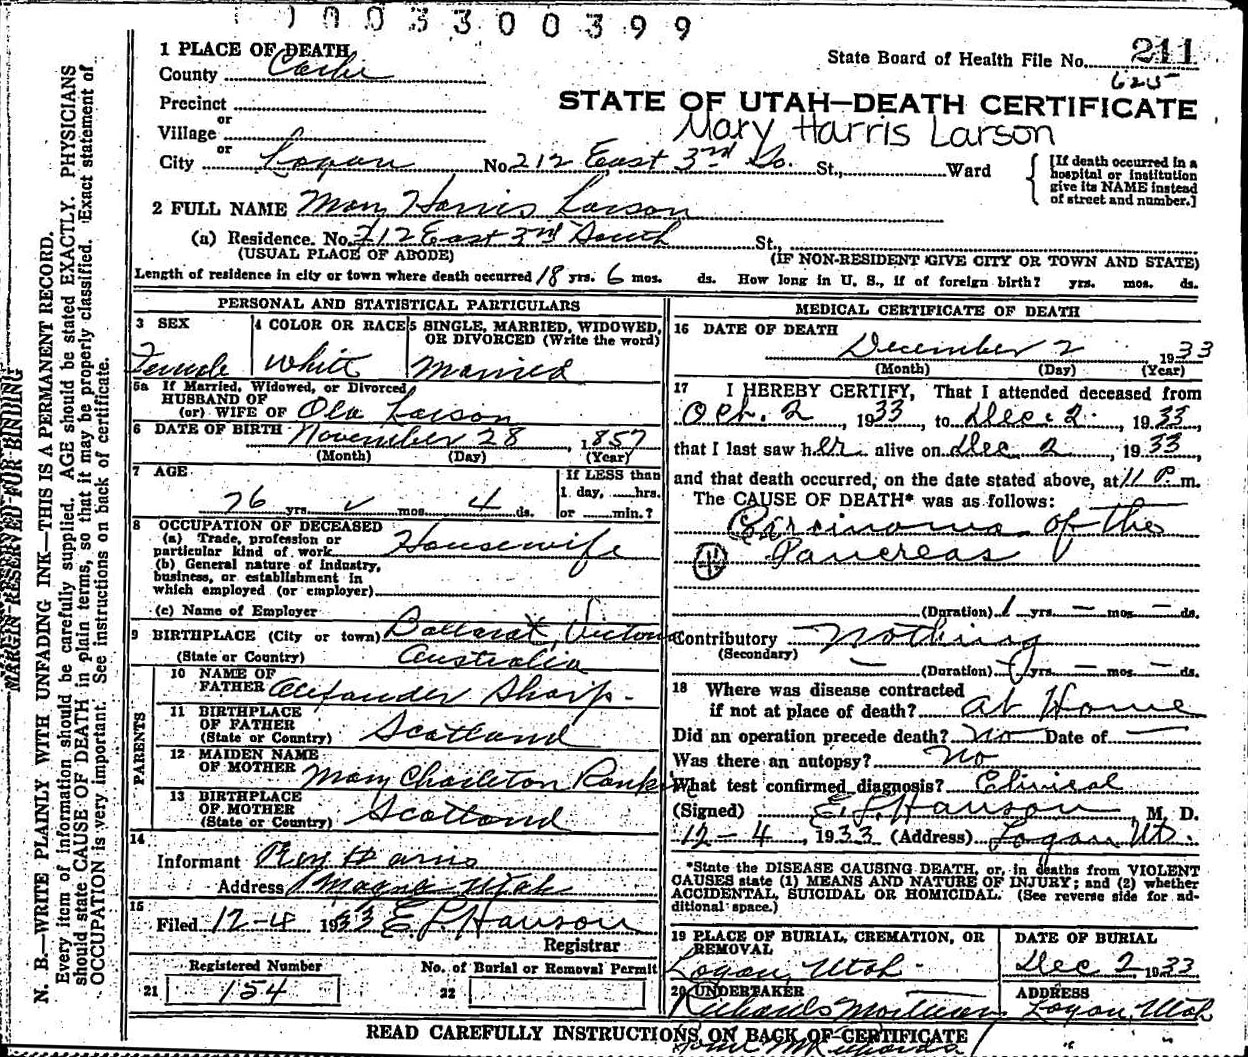 1003300399
1 PLACE OF DEATH
County Cache
State Board of Health File No. 211
625
Precinct
or
Village
or
STATE OF UTAH—DEATH CERTIFICATE
Mary Harris Larson
City Logan No. 212 East 3rd So. St., Ward
[If death occurred in a hospital or institution give its NAME instead of street and number.]
2 FULL NAME Mary Harris Larson
(a) Residence. No. 212 East 3rd South St.,
(USUAL PLACE OF ABODE) (IF NON-RESIDENT GIVE CITY OR TOWN AND STATE)
Length of residence in city or town where death occurred 18 yrs. 6 mos. ds. How long in U. S., if of foreign birth? yrs. mos. ds.
PERSONAL AND STATISTICAL PARTICULARS
3 SEX
Female
4 COLOR OR RACE
White
5 SINGLE, MARRIED, WIDOWED, OR DIVORCED (Write the word)
Married
5a If Married, Widowed, or Divorced
HUSBAND OF
(or) WIFE OF Ola Larson
6 DATE OF BIRTH November 28, 1857
(Month) (Day) (Year)
7 AGE
76 yrs. mos. 4 ds.
If LESS than
1 day, hrs.
or min.?
8 OCCUPATION OF DECEASED
(a) Trade, profession or
particular kind of work Housewife
(b) General nature of industry,
business, or establishment in
which employed (or employer)
(c) Name of Employer
9 BIRTHPLACE (City or town) Ballarat, Victoria
(State or Country) Australia
PARENTS
10 NAME OF
FATHER Alexander Sharp
11 BIRTHPLACE
OF FATHER
(State or Country) Scotland
12 MAIDEN NAME
OF MOTHER Mary Charleton Rankin
13 BIRTHPLACE
OF MOTHER
(State or Country) Scotland
14
Informant
Address Magna Utah
15
Filed 12-4 1933 E. L. Hanson
Registrar
Registered Number
21 154
No. of Burial or Removal Permit
22
MEDICAL CERTIFICATE OF DEATH
16 DATE OF DEATH
December 2 1933
(Month) (Day) (Year)
17 I HEREBY CERTIFY, That I attended deceased from
Oct. 2, 1933, to Dec. 2, 1933
that I last saw her alive on Dec. 2, 1933,
and that death occurred, on the date stated above, at 11 P. m.
The CAUSE OF DEATH* was as follows:
Carcinoma of the
Pancreas
(Duration) 1 yrs. — mos. — ds.
Contributory Nothing
(Secondary)
— (Duration) yrs. — mos. — ds.
18 Where was disease contracted
if not at place of death? at Home
Did an operation precede death? No Date of —
Was there an autopsy? No
What test confirmed diagnosis? Clinical
(Signed) E. L. Hanson, M. D.
12-4, 1933 (Address) Logan Ut.
*State the DISEASE CAUSING DEATH, or, in deaths from VIOLENT
CAUSES state (1) MEANS AND NATURE OF INJURY; and (2) whether
ACCIDENTAL, SUICIDAL OR HOMICIDAL. (See reverse side for ad-
ditional space.)
19 PLACE OF BURIAL, CREMATION, OR
REMOVAL
Logan, Utah
DATE OF BURIAL
Dec 2 1933
20 UNDERTAKER
Richards Mortuary
ADDRESS
Logan, Utah
READ CAREFULLY INSTRUCTIONS ON BACK OF CERTIFICATE
MARGIN RESERVED FOR BINDING
N. B.—WRITE PLAINLY WITH UNFADING INK—THIS IS A PERMANENT RECORD.
Every item of information should be carefully supplied. AGE should be stated EXACTLY. PHYSICIANS
should state CAUSE OF DEATH in plain terms, so that it may be properly classified. Exact statement of
OCCUPATION is very important. See instructions on back of certificate.